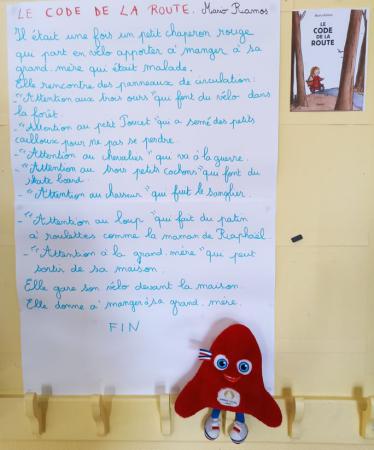 LE CODE DE LA ROUTE. Mario Ramos
Il était une fois un petit chaperon rouge
qui part en vélo apporter à manger à sa
grand-mère qui était malade.
Elle rencontre des panneaux de circulation:
-"Attention aux trois ours" qui font du vélo dans
la forêt.
-"Attention au petit Poucet" qui a semé des petits
cailloux pour ne pas se perdre.
-"Attention au chevalier" qui va à la guerre.
-"Attention au trois petits cochons" qui font du
skate board.
-"Attention au chasseur" qui fuit le sanglier.
-"Attention au loup" qui fait du patin
à roulettes comme la maman de Raphaël.
-"Attention à la grand-mère" qui peut
sortir de sa maison.
Elle gare son vélo devant la maison.
Elle donne à manger à sa grand-mère.
FIN
LE
CODE
DE LA
ROUTE